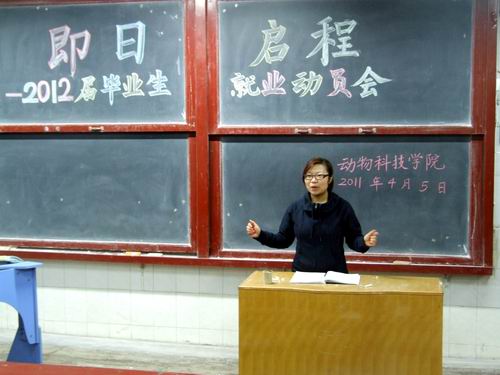 即日启程
—2012届毕业生就业动员会
动物科技学院
2011年4月5日